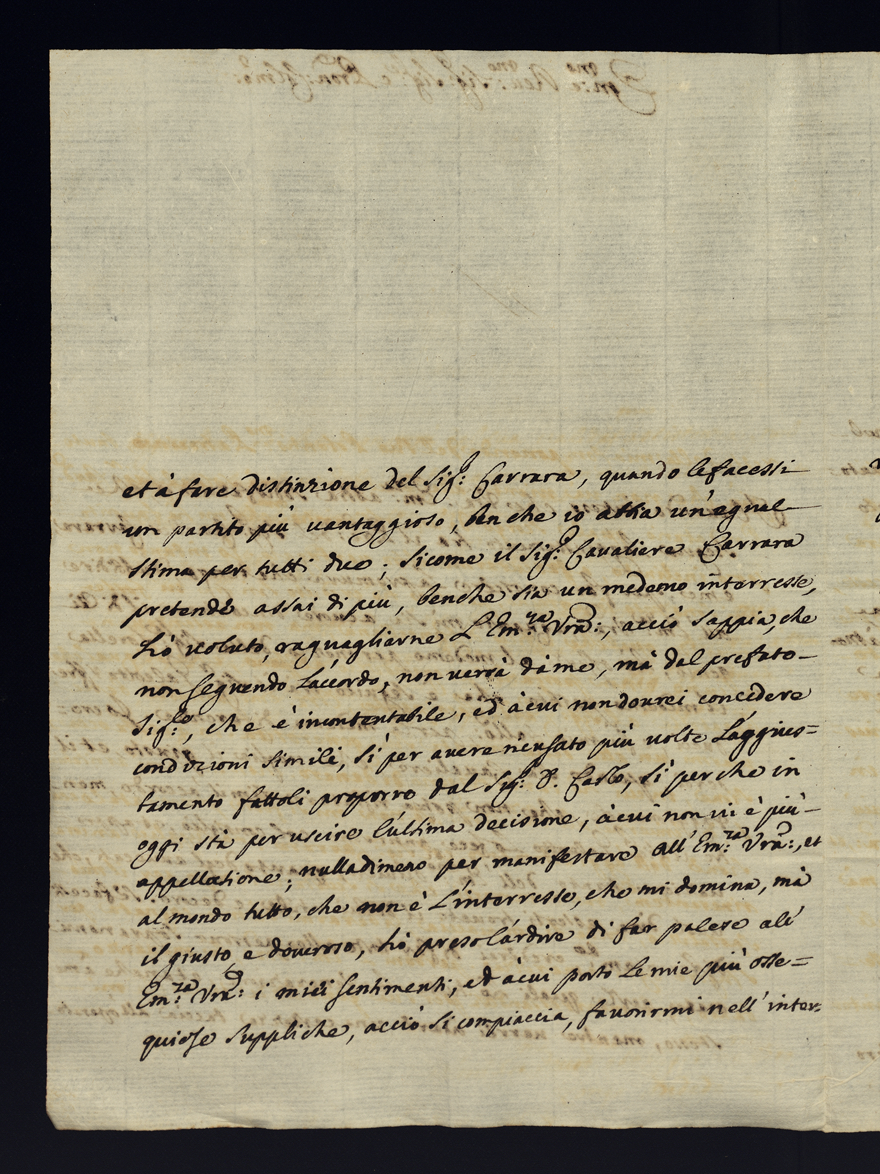 et à fare distinzione del Sig.r Carrara, quando le facessi
un partito più vantaggioso, benche io abbia un'egual
stima per tutti due; sicome il Sig.r Cavaliere Carrara
pretende assai di più, benche sia un medemo interresse,
hò voluto, raguagliarne L'Em:za Vra:, acciò sappia, che
non seguendo L'accordo, non verrà dà me, mà dal prefato
Sig.re, che è incontentabile, ed à cui non dovrei concedere
condizioni simili, sì per avere ricusato più volte L'aggius=
tamento fattoli proporre dal Sig.r D. Carlo, sì perche in
oggi stà per uscire l'ultima decisione, à cui non vi è più
appellatione; nulladimeno per manifestare all'Em:za Vra:, et
al mondo tutto, che non è L'interresse, che mi domina, mà
il giusto, e doveroso, hò preso l'ardire di far palese alì
Em:za Vra: i miei sentimenti, ed à cui porto le mie più osse=
quiose suppliche, acciò si compiaccia, favorirmi nell'inter: